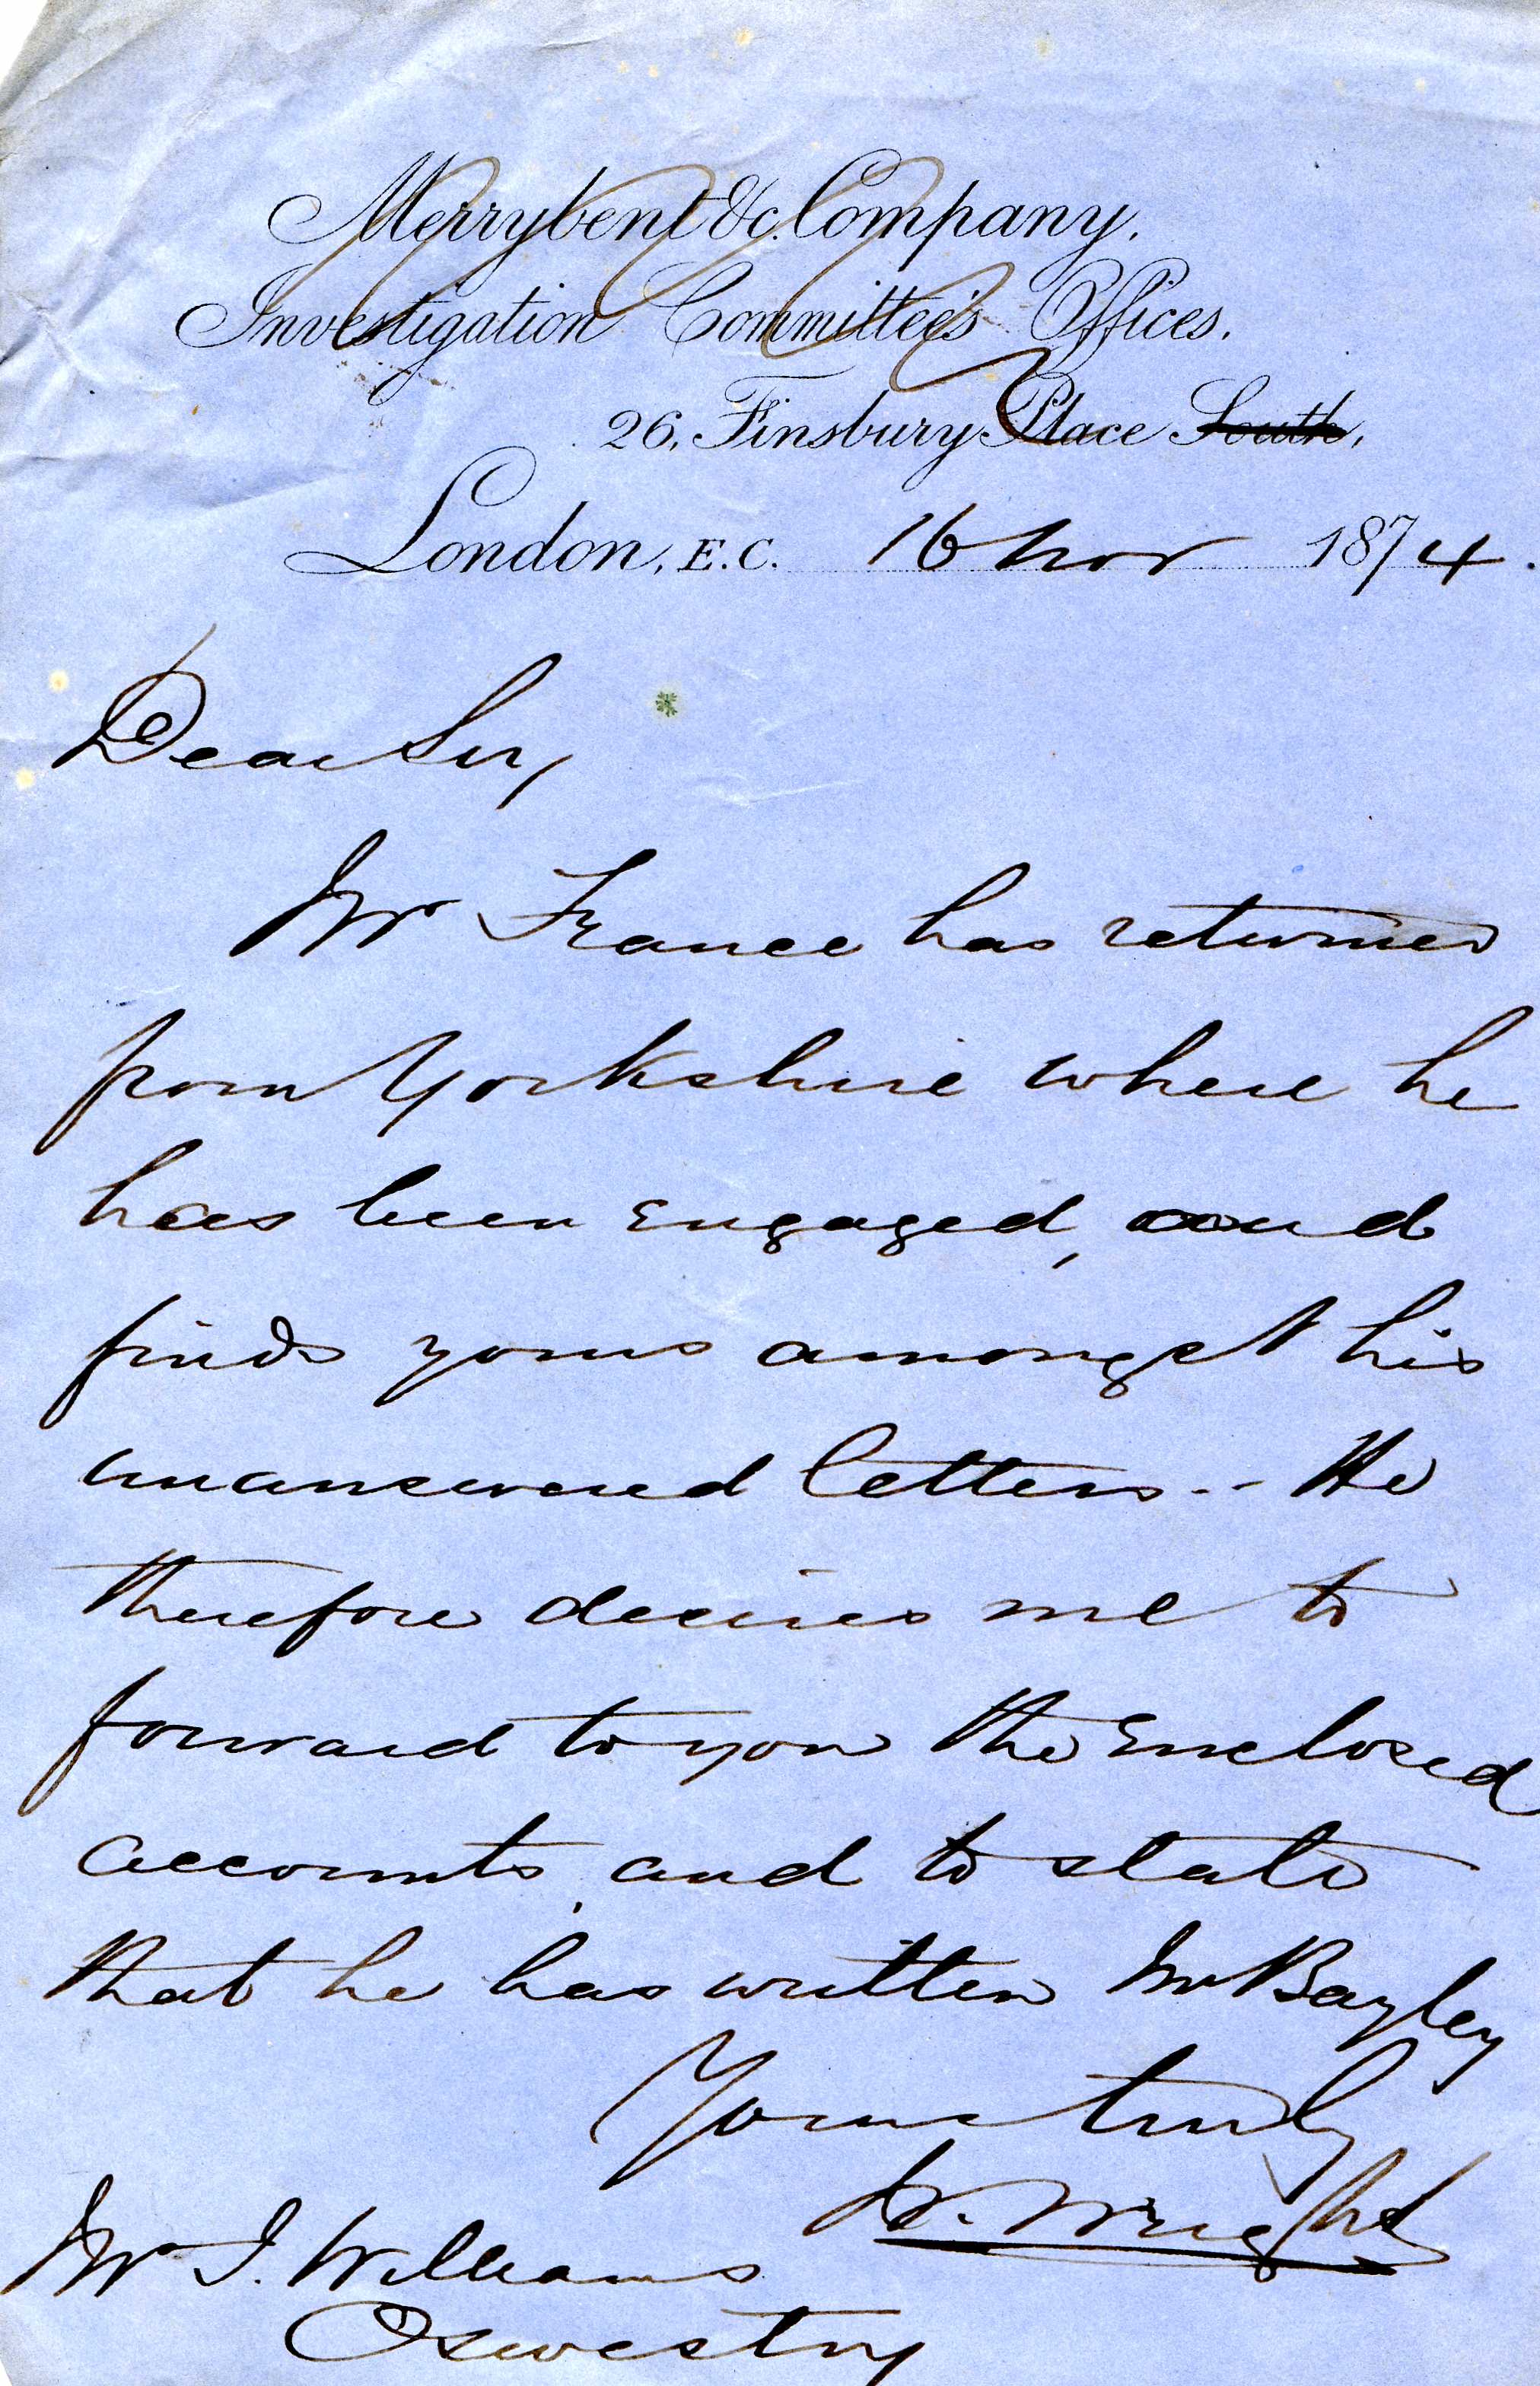 Merrybent &c. Company.
Investigation Committee's Offices.
26, Finsbury Place South,
London, E.C. 16 Nov 1874.
Dear Sir,
Mr France has returned
from Yorkshire where he
has been engaged, and
finds yours amongst his
unanswered letters. - He
therefore desires me to
forward to you the Enclosed
accounts, and to state
that he has written Mr Bayley
Yours truly
Wright
Mr J. Williams
Oswestry